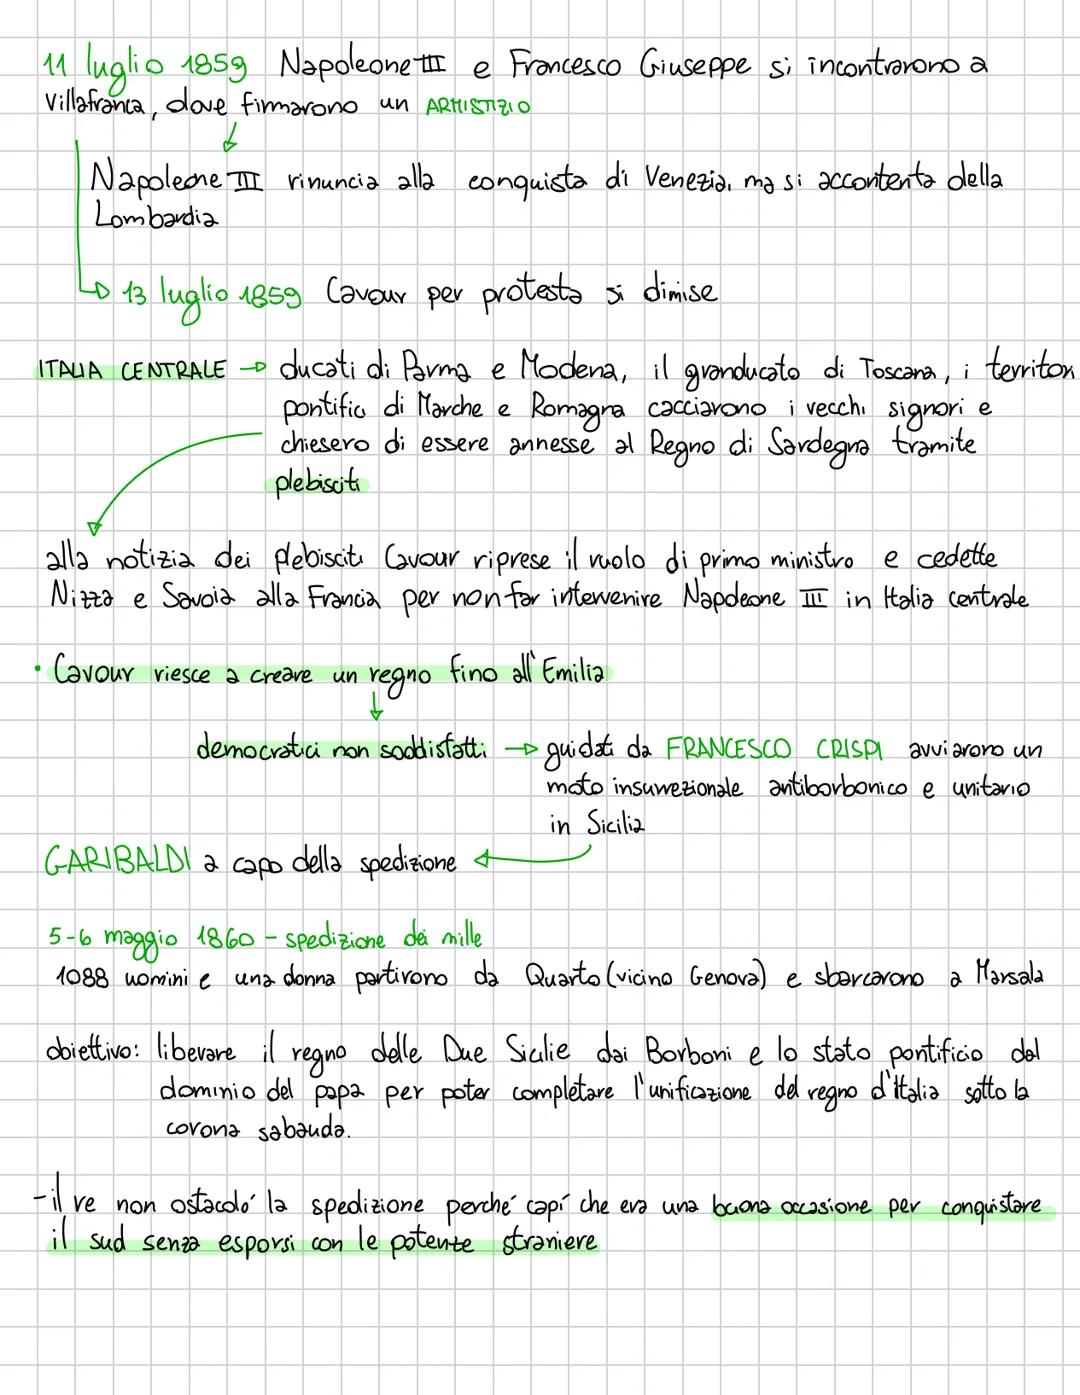 11 luglio 1859 Napoleone III e Francesco Giuseppe si incontrarono a
Villafranca, dove firmarono un ARMISTIZIO
Napoleone III rinuncia alla conquista di Venezia, ma si accontenta della
Lombardia
13 luglio 1859 Cavour per protesta si dimise
ITALIA CENTRALE → ducati di Parma e Modena, il granducato di Toscana, i territori
pontifici di Marche e Romagna cacciarono i vecchi signori e
chiesero di essere annesse al Regno di Sardegna tramite
plebisciti
alla notizia dei plebisciti Cavour riprese il ruolo di primo ministro e cedette
Nizza e Savoia alla Francia per non far intervenire Napoleone III in Italia centrale
• Cavour riesce a creare un regno fino all'Emilia
democratici non soddisfatti → guidati da FRANCESCO CRISPI avviarono un
moto insurrezionale antiborbonico e unitario
in Sicilia
GARIBALDI a capo della spedizione
5-6 maggio 1860 - spedizione dei mille
1088 uomini e una donna partirono da Quarto (vicino Genova) e sbarcarono a Marsala
obiettivo: liberare il regno delle Due Sicilie dai Borboni e lo stato pontificio dal
dominio del papa per poter completare l'unificazione del regno d'Italia sotto la
corona sabauda.
- il re non ostacoló la spedizione perché capí che era una buona occasione per conquistare
il sud senza esporsi con le potente straniere